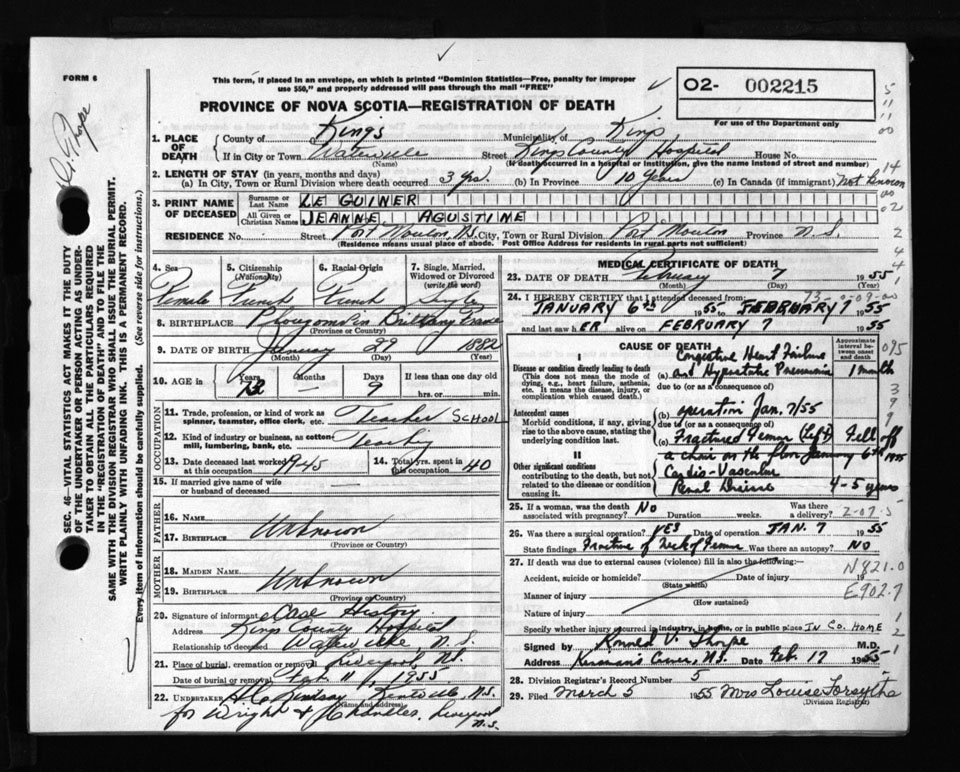 FORM 6
This form, if placed in an envelope, on which is printed "Dominion Statistics—Free, penalty for improper
use $50," and properly addressed will pass through the mail "FREE"
PROVINCE OF NOVA SCOTIA—REGISTRATION OF DEATH
O2- 002215
For use of the Department only
SEC. 46—VITAL STATISTICS ACT MAKES IT THE DUTY
OF THE UNDERTAKER OR PERSON ACTING AS UNDER-
TAKER TO OBTAIN ALL THE PARTICULARS REQUIRED
IN THE "REGISTRATION OF DEATH" AND TO FILE THE
SAME WITH THE DIVISION REGISTRAR WHO SHALL ISSUE THE BURIAL PERMIT.
WRITE PLAINLY WITH UNFADING INK. THIS IS A PERMANENT RECORD.
Every item of information should be carefully supplied. (See reverse side for instructions.)
1. PLACE OF DEATH County of Kings Municipality of Kings
If in City or Town Waterville Street Kings County Hospital House No.
(Name) (If death occurred in a hospital or institution, give the name instead of street and number)
2. LENGTH OF STAY (in years, months and days)
(a) In City, Town or Rural Division where death occurred 3 yrs. (b) In Province 10 years (c) In Canada (if immigrant) Not known
3. PRINT NAME OF DECEASED Surname or Last Name LE GUINER
All Given or Christian Names JEANNE, AGUSTINE
RESIDENCE No. Street Port Mouton, N.S. City, Town or Rural Division Port Mouton Province N.S.
(Residence means usual place of abode. Post Office Address for residents in rural parts not sufficient)
4. Sex Female
5. Citizenship (Nationality) French
6. Racial Origin French
7. Single, Married, Widowed or Divorced (write the word) Single
8. BIRTHPLACE Brittany France
(Province or Country)
9. DATE OF BIRTH January 29 1882
(Month) (Day) (Year)
10. AGE in Years Months Days 9 If less than one day
hrs. or min.
OCCUPATION
11. Trade, profession, or kind of work as spinner, teamster, office clerk, etc. Teacher SCHOOL
12. Kind of industry or business, as cotton-mill, lumbering, bank, etc. Teaching
13. Date deceased last worked at this occupation 1945
14. Total yrs. spent in this occupation 40
15. If married give name of wife or husband of deceased
FATHER
16. Name
17. Birthplace Unknown
(Province or Country)
MOTHER
18. Maiden Name
19. Birthplace Unknown
(Province or Country)
20. Signature of informant Case History
Address Kings County Hospital
Relationship to deceased Waterville, N.S.
21. Place of burial, cremation or removal Liverpool, N.S.
Date of burial or removal Feb. 11, 1955
22. UNDERTAKER Lindsay Kentville N.S.
(Name and address)
for Wright & Chandler, Liverpool
N.S.
MEDICAL CERTIFICATE OF DEATH
23. DATE OF DEATH February 7 1955
(Month) (Day)
24. I HEREBY CERTIFY that I attended deceased from:
JANUARY 6th 1955 to FEBRUARY 7 1955
and last saw hER alive on FEBRUARY 7 1955
CAUSE OF DEATH
Approximate interval between onset and death
I
Disease or condition directly leading to death
(This does not mean the mode of dying, e.g., heart failure, asthenia, etc. It means the disease, injury, or complication which caused death.)
(a) Congestive Heart Failure
and Hypostatic Pneumonia 1 month
due to (or as a consequence of)
Antecedent causes
Morbid conditions, if any, giving rise to the above cause, stating the underlying condition last.
(b) operation Jan. 7/55
due to (or as a consequence of)
(c) Fractured Femur (Left) Fell off
a chair on the floor January 6th 1955
II
Other significant conditions
contributing to the death, but not related to the disease or condition causing it.
Cardio-Vascular
Renal Disease 4-5 years
25. If a woman, was the death associated with pregnancy? NO Duration weeks. Was there a delivery?
26. Was there a surgical operation? YES Date of operation JAN. 7 1955
State findings Fracture of Neck of Femur Was there an autopsy? NO
27. If death was due to external causes (violence) fill in also the following:—
N821.0
Accident, suicide or homicide? Date of injury 19
(State which)
E902.7
Manner of injury
(How sustained)
Nature of injury
Specify whether injury occurred in industry, in home, or in public place IN CO. HOME
Signed by Ronald V. Thorpe M.D.
Address N.S. Date Feb. 17 1955
28. Division Registrar's Record Number 5
29. Filed March 5 1955 Mrs Louise Forsythe
(Division Registrar)